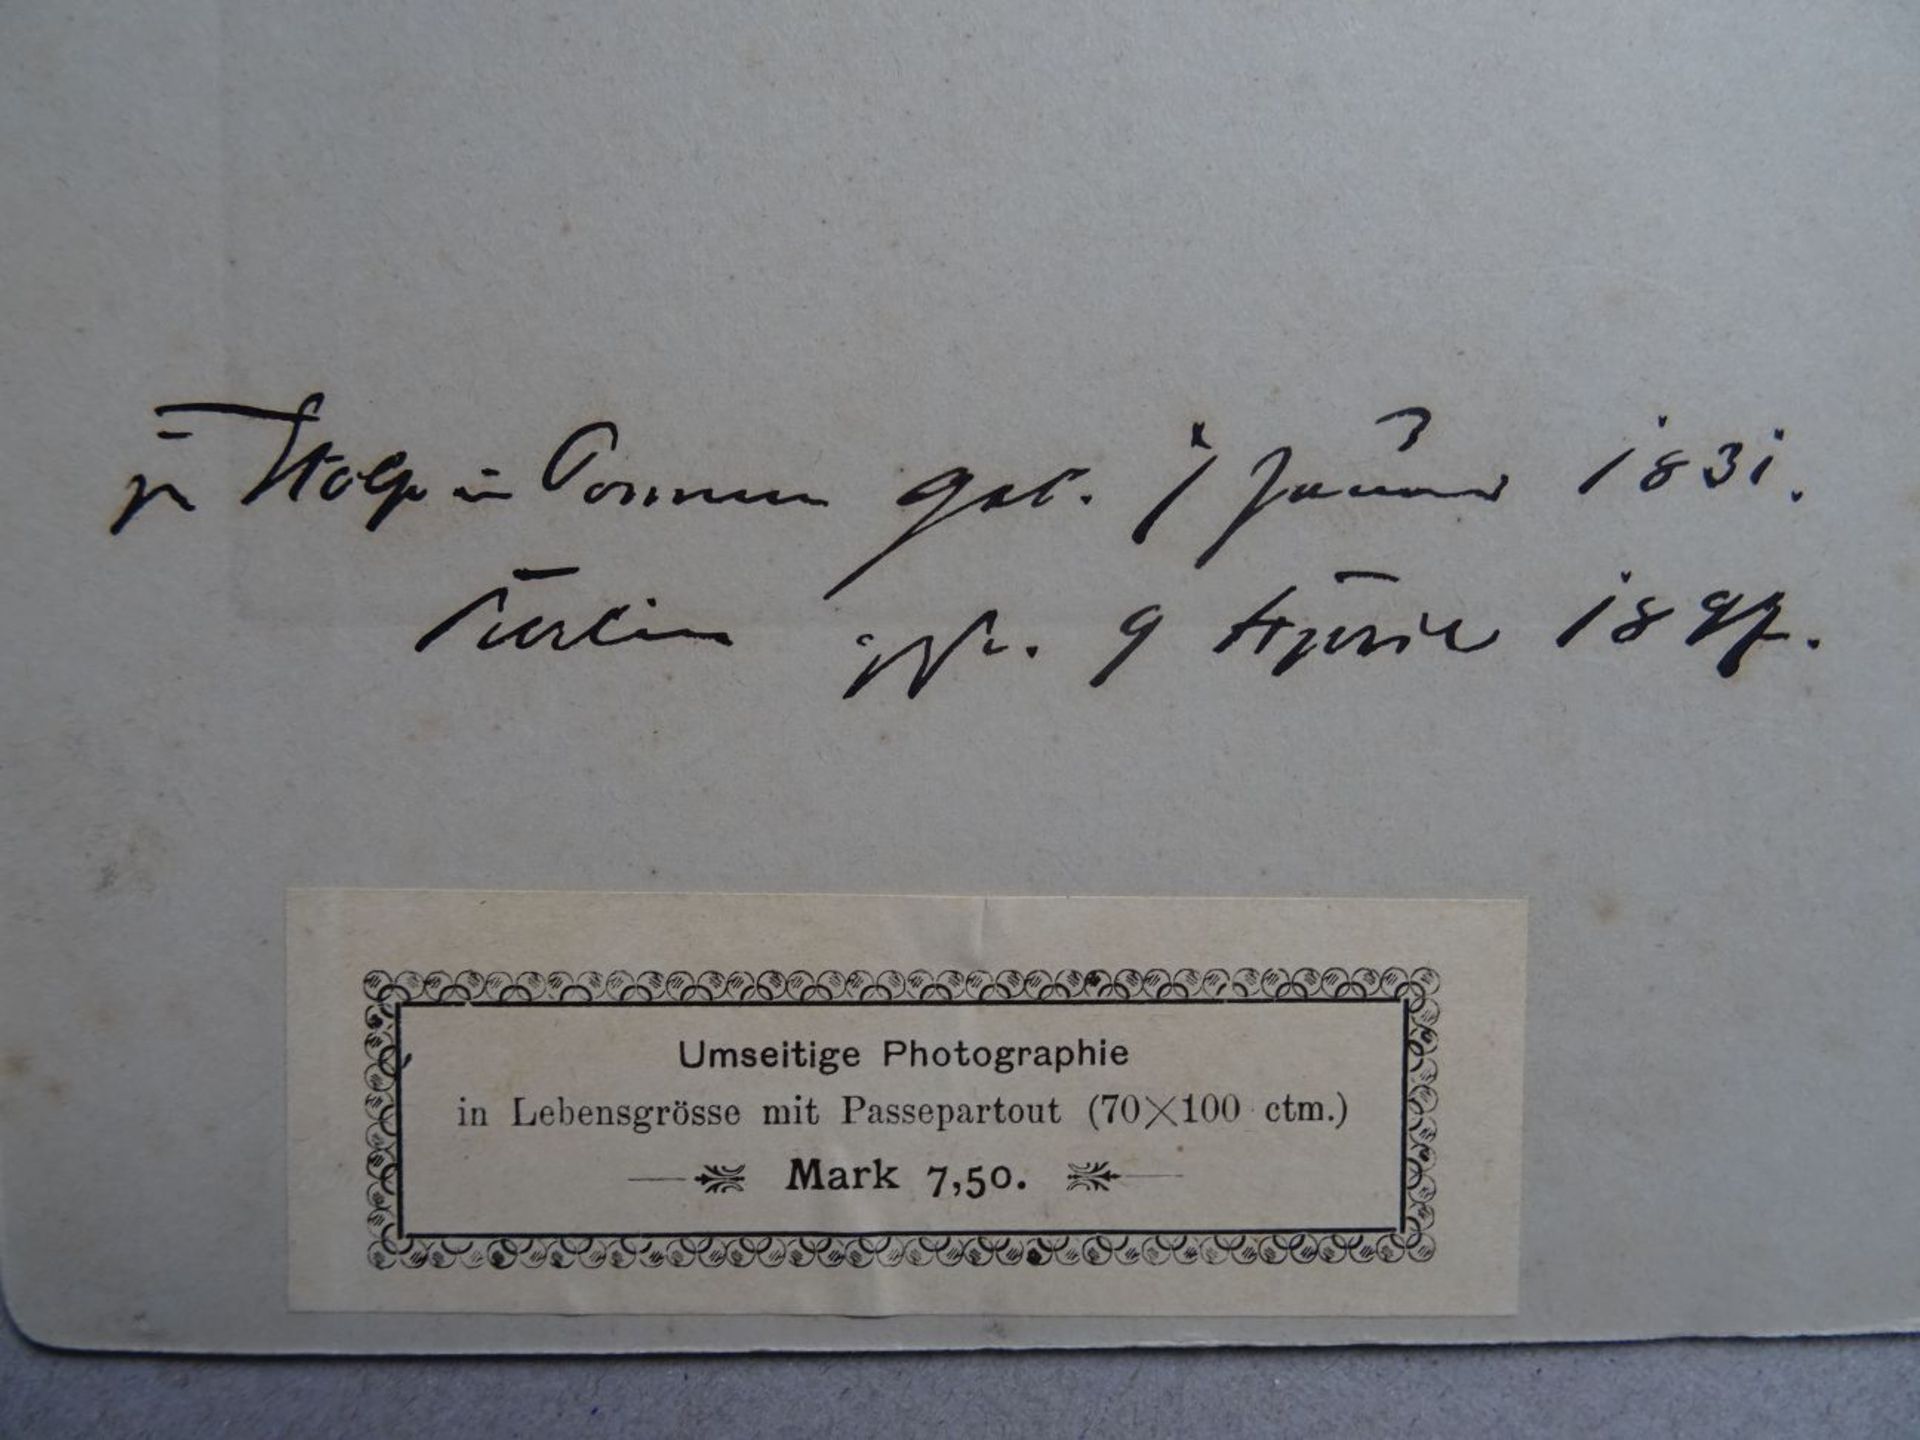 zu Stolp in Pommern geb. 7 Januar 1831.
Berlin gest. 9 April 1897.
Umseitige Photographie
in Lebensgrösse mit Passepartout (70×100 ctm.)
Mark 7,50.